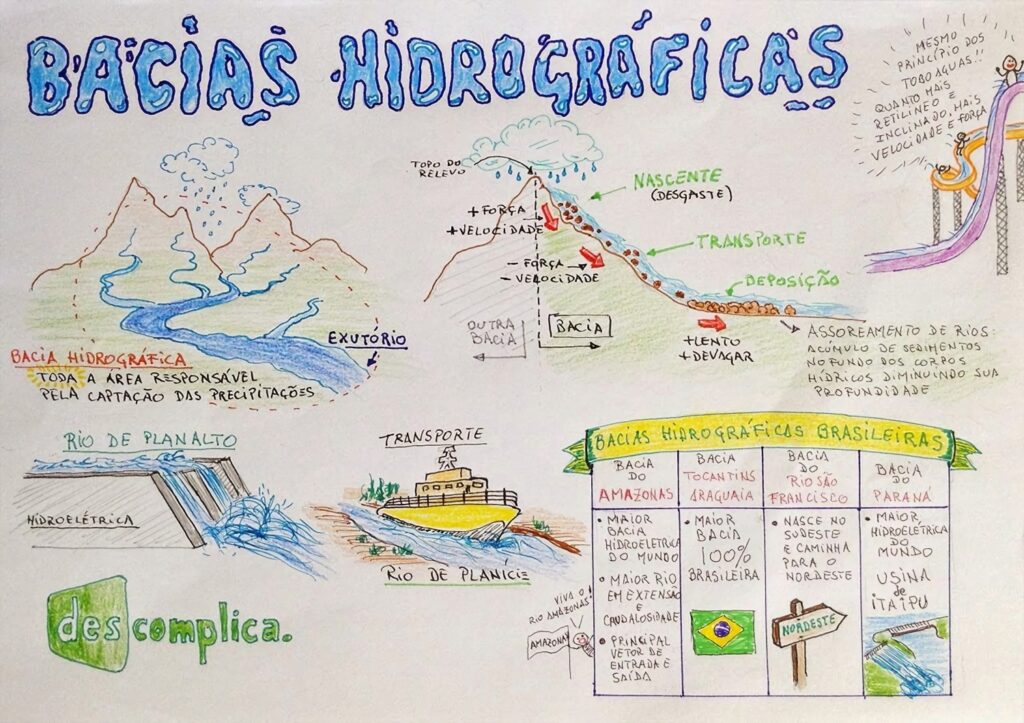 BACIAS HIDROGRÁFICAS
MESMO
PRINCÍPIO DOS
TOBOÁGUAS!!
QUANTO MAIS
RETILÍNEO E
INCLINADO, MAIS
VELOCIDADE E FORÇA
TOPO DO
RELEVO
NASCENTE
(DESGASTE)
+ FORÇA
+ VELOCIDADE
TRANSPORTE
- FORÇA
- VELOCIDADE
DEPOSIÇÃO
OUTRA
BACIA
BACIA
+ LENTO
+ DEVAGAR
ASSOREAMENTO DE RIOS:
ACÚMULO DE SEDIMENTOS
NO FUNDO DOS CORPOS
HÍDRICOS DIMINUINDO SUA
PROFUNDIDADE
EXUTÓRIO
BACIA HIDROGRÁFICA
TODA A ÁREA RESPONSÁVEL
PELA CAPTAÇÃO DAS PRECIPITAÇÕES
RIO DE PLANALTO
HIDROELÉTRICA
TRANSPORTE
RIO DE PLANÍCIE
BACIAS HIDROGRÁFICAS BRASILEIRAS
BACIA
DO
AMAZONAS
• MAIOR
BACIA
HIDROELÉTRICA
DO MUNDO
• MAIOR RIO
EM EXTENSÃO
E
CAUDALOSIDADE
• PRINCIPAL
VETOR DE
ENTRADA E
SAÍDA
BACIA
TOCANTINS
ARAGUAIA
• MAIOR
BACIA
100%
BRASILEIRA
BACIA
DO
RIO SÃO
FRANCISCO
• NASCE NO
SUDESTE
E CAMINHA
PARA O
NORDESTE
NORDESTE
BACIA
DO
PARANÁ
• MAIOR
HIDROELÉTRICA
DO
MUNDO
USINA
de
ITAIPU
VIVA O
RIO AMAZONAS!
AMAZONAS
descomplica.